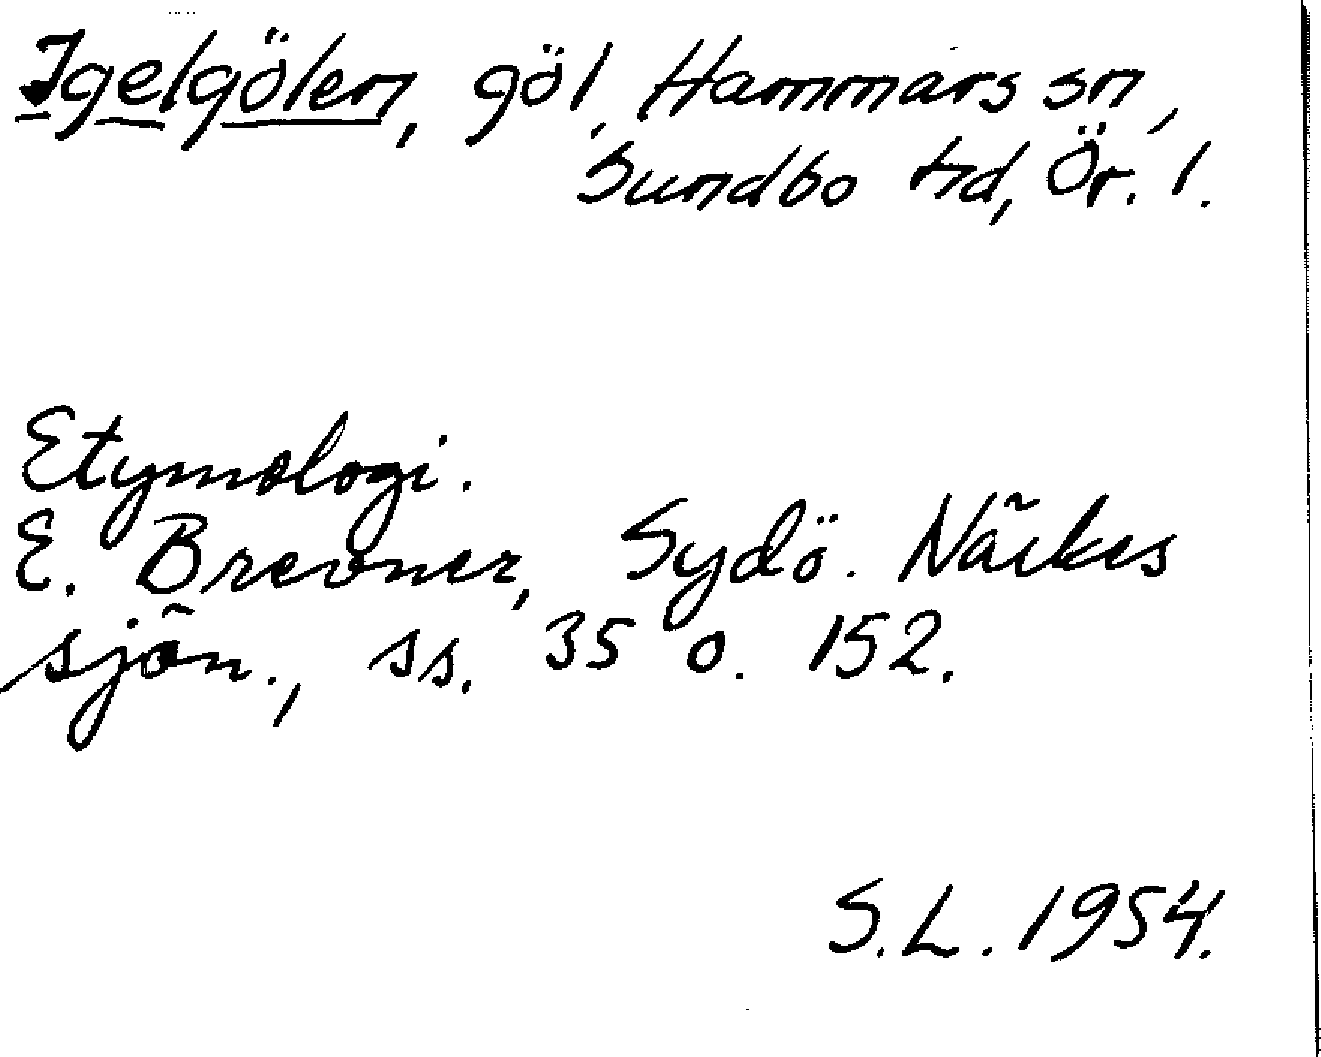 Igelgölen, göl, Hammars sn,
Sundbo hd, Ör. l.
Etymologi.
E. Brevner, Sydö. Närkes
sjön., ss. 35 o. 152.
S.L. 1954.